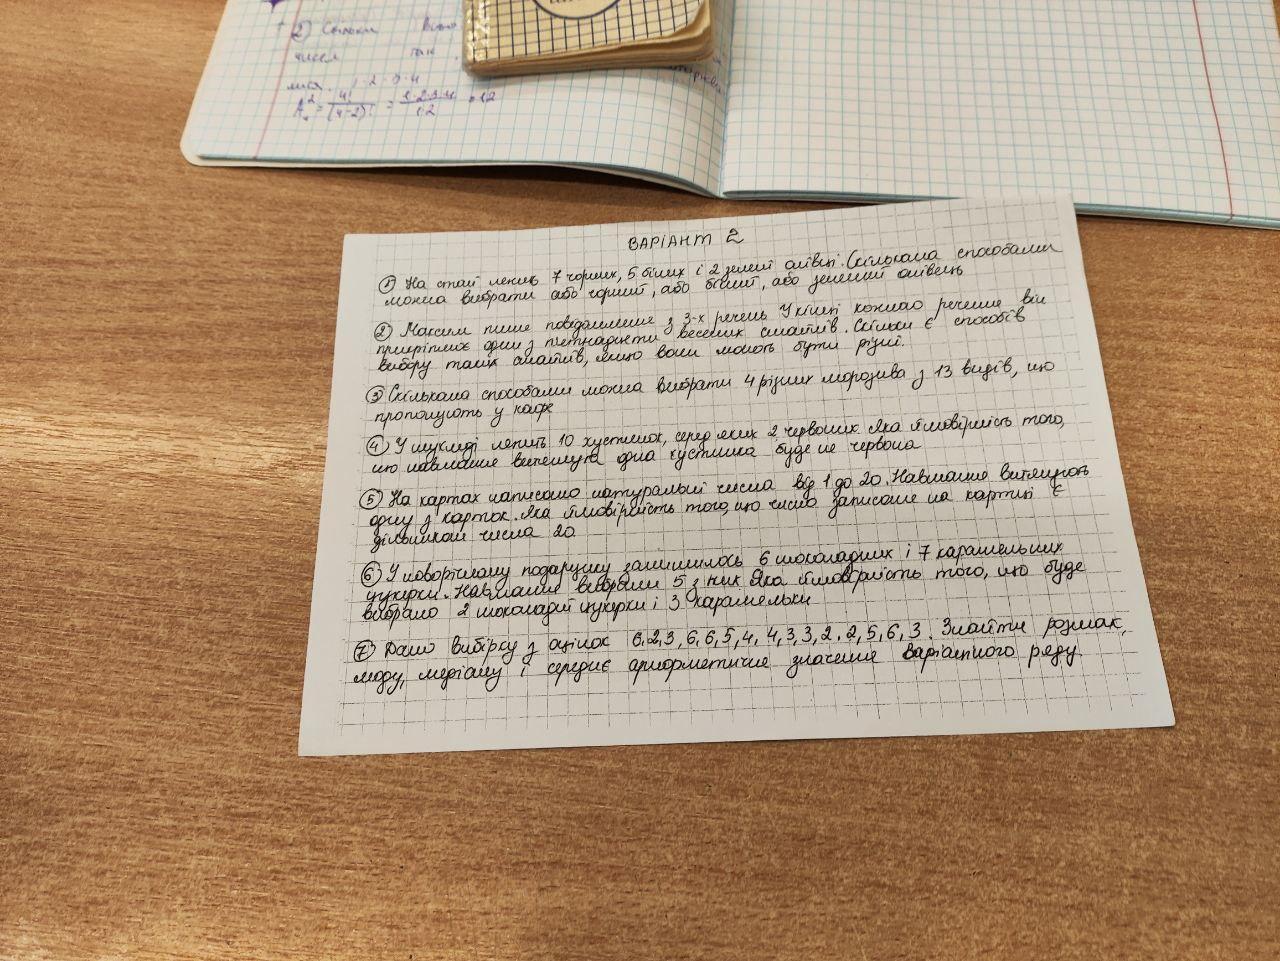 2) Скільки
чисел
A₄² = 4!/(4-2)! = 1·2·3·4/1·2 = 12
ВАРІАНТ 2
① На столі лежить 7 чорних, 5 білих і 2 зелені олівці. Скількома способами
можна вибрати або чорний, або білий, або зелений олівець
② Максим пише повідомлення з 3-х речень. У кінці кожного речення він
прикріплює один з пятнадцяти веселих смайлів. Скільки є способів
вибору таких смайлів, якщо вони можуть бути різні.
③ Скількома способами можна вибрати 4 різних морозива з 13 видів, що
пропонують у кафе
④ У шухляді лежить 10 хустинок, серед яких 2 червоних. Яка ймовірність того,
що навмання витягнута одна хустинка буде не червона
⑤ На картах написано натуральні числа від 1 до 20. Навмання витягують
одну з карток. Яка ймовірність того, що число записане на картці є
дільником числа 20
⑥ У новорічному подарунку залишилось 6 шоколадних і 7 карамельних
цукерки. Навмання вибрали 5 з них. Яка ймовірність того, що буде
вибрано 2 шоколадні цукерки і 3 карамельки
⑦ Дано вибірку з оцінок 6,2,3,6,6,5,4,4,3,3,2,2,5,6,3. Знайти розмах,
моду, медіану і середнє арифметичне значення варіаційного ряду.